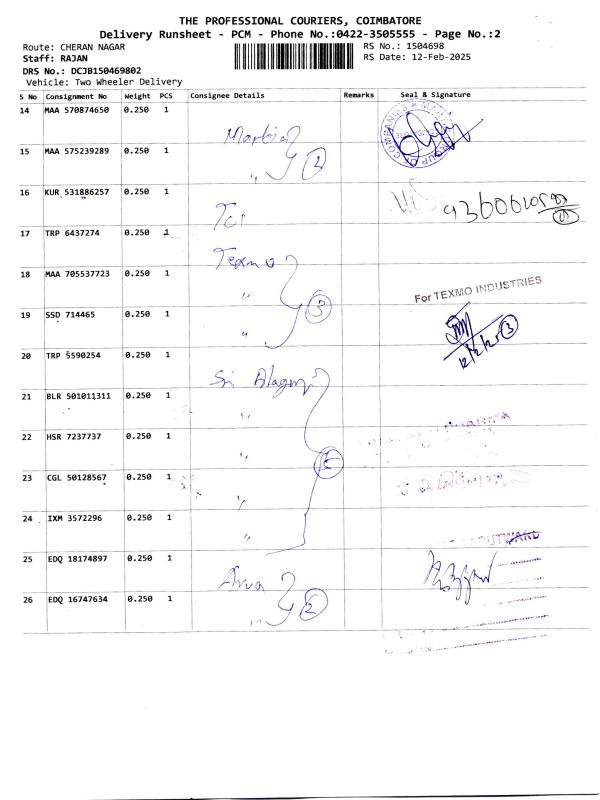 THE PROFESSIONAL COURIERS, COIMBATORE
Delivery Runsheet - PCM - Phone No.:0422-3505555 - Page No.:2
Route: CHERAN NAGAR RS No.: 1504698
Staff: RAJAN RS Date: 12-Feb-2025
DRS No.: DCJB150469802
Vehicle: Two Wheeler Delivery
S No Consignment No Weight PCS Consignee Details Remarks Seal & Signature
14 MAA 570874650 0.250 1
15 MAA 575239289 0.250 1
16 KUR 531886257 0.250 1
17 TRP 6437274 0.250 1
Texmo
18 MAA 705537723 0.250 1
"
3
For TEXMO INDUSTRIES
19 SSD 714465 0.250 1
"
12/2/25 3
20 TRP 5590254 0.250 1
Sri
21 BLR 501011311 0.250 1
"
22 HSR 7237737 0.250 1
"
23 CGL 50128567 0.250 1
"
24 IXM 3572296 0.250 1
"
25 EDQ 18174897 0.250 1
26 EDQ 16747634 0.250 1
" 2